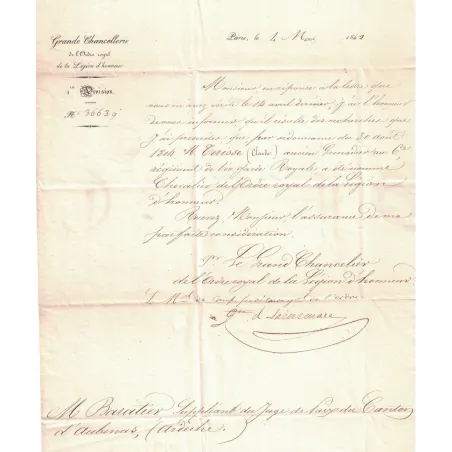 Grande Chancellerie
de l'Ordre royal
de la Légion d'honneur
Division
N° 36639
Paris, le 4 Mai 1842
Monsieur, en réponse à la lettre que
vous m'avez écrite le 14 avril dernier, j'ai l'honneur
de vous informer qu'il résulte des recherches que
j'ai prescrites que par ordonnance du 30 août
1814 M. (Claude) ancien Grenadier au 6e
régiment de l'ex Garde Royale, a été nommé
Chevalier de l'Ordre royal de la Légion
d'honneur.
Recevez Monsieur, l'assurance de ma
parfaite considération.
Le Grand Chancelier
de l'Ordre royal de la Légion d'honneur
M. Suppléant du Juge de Paix du Canton
d'Aubenas, (Ardèche).